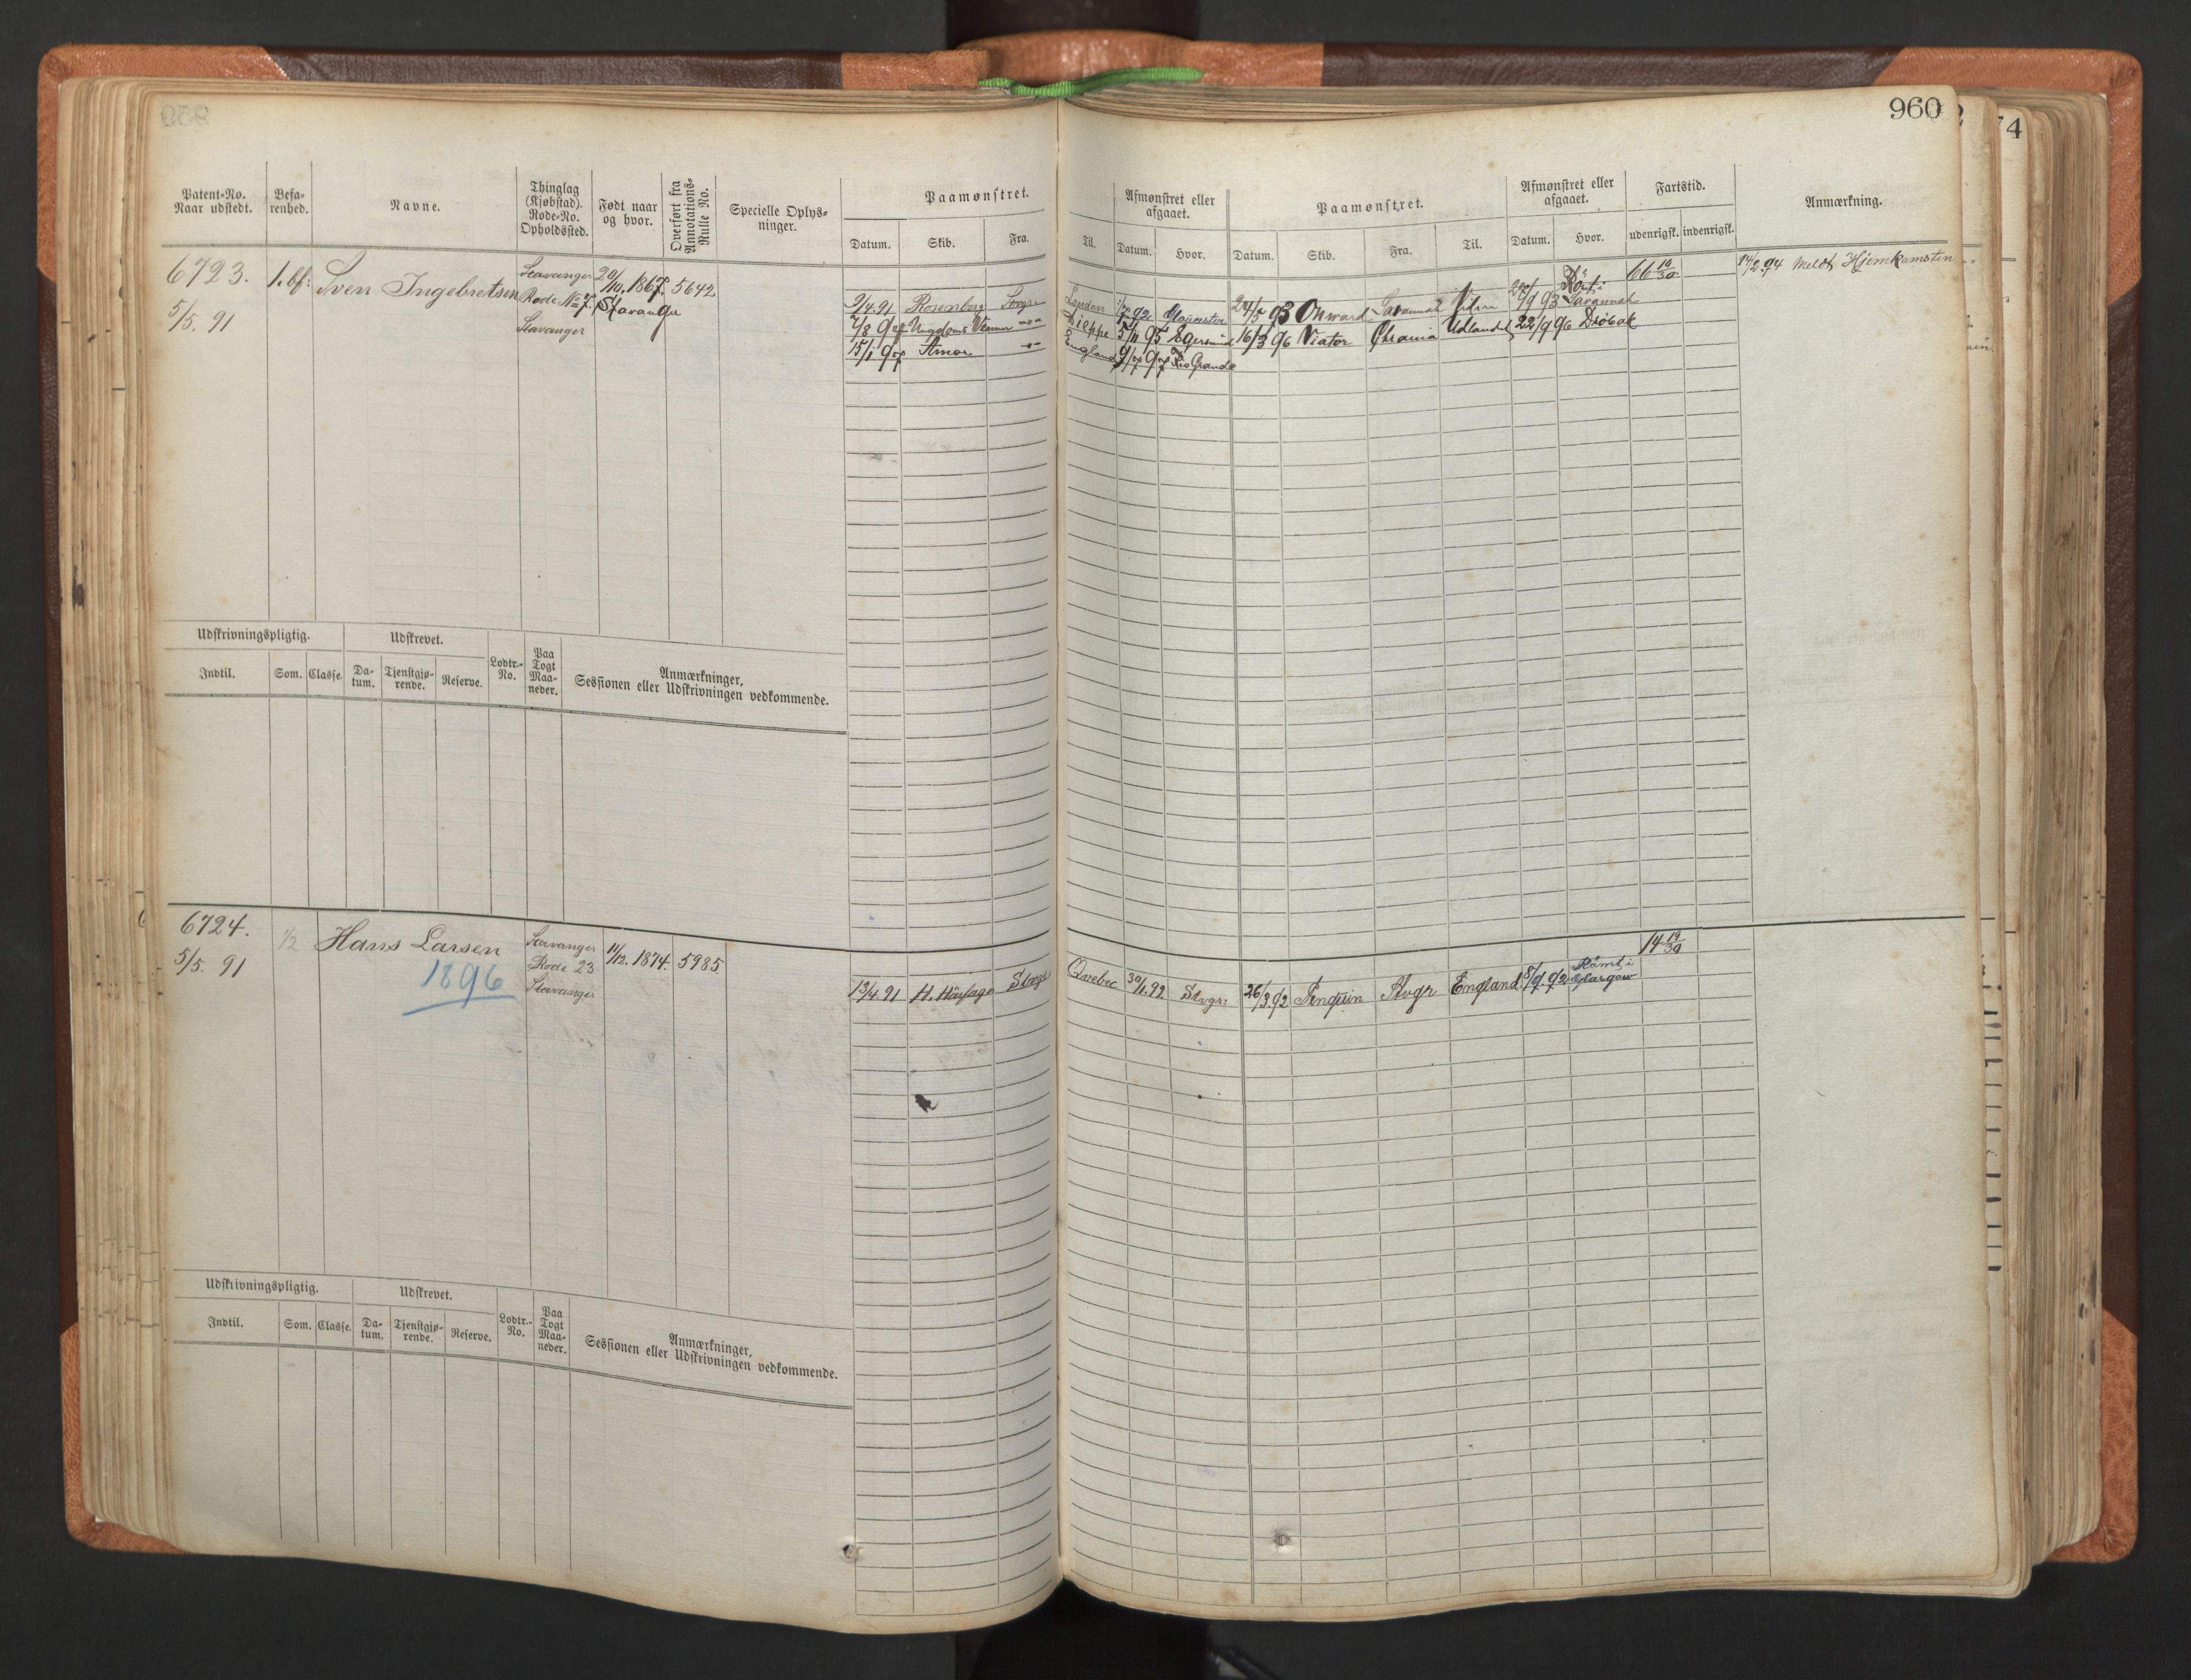 960
4
Patent-No.
Naar udstedt.
Befa-
renhed.
Navne.
Thinglag
(Kjøbstad).
Rode-No.
Opholdssted.
Født naar
og hvor.
Overført fra
Annotations-
Rulle No.
Specielle Oplys-
ninger.
Paamønstret.
Datum.
Skib.
Fra.
Til.
Afmønstret eller
afgaaet.
Datum.
Hvor.
Paamønstret.
Datum.
Skib.
Fra.
Til.
Afmønstret eller
afgaaet.
Datum.
Hvor.
Fartstid.
udenrigsk.
indenrigsk.
Anmærkning.
6723.
5/5. 91
1. bf:
Sven Ingebretsen
Stavanger
Rode No 7.
Stavanger
20/10. 1867.
Stavanger
5642
9/4.91 Rosenborg
London Gloucester
24/5 93 Onward Savannah
93 Savannah
66 10/30
14/2.94 Meldt Hjemkomsten
Ungdoms Venner
Dieppe 5/11 95 Egersund
16/3 96 Viator Chrania Udlandet 22/9 96 Drøbak
15/1 97 Amor
England Rio Grande
Udskrivningspligtig.
Udskrevet.
Indtil.
Som.
Classe.
Da-
tum.
Tjenstgjø-
rende.
Reserve.
Lodtr.-
No.
Paa
Togt
Maa-
neder.
Anmærkninger,
Sessionen eller Udskrivningen vedkommende.
6724.
5/5. 91
1/2
Hans Larsen
1896
Stavanger
Rode 23
Stavanger
11/12. 1874.
5985.
13/4.91 H. Haarfagr
Qvebec 30/1.92 Stvgr:
26/3.92 Penguin Stvgr England 8/9.92 Rømt i
Glasgow
14 19/30
Udskrivningspligtig.
Udskrevet.
Indtil.
Som.
Classe.
Da-
tum.
Tjenstgjø-
rende.
Reserve.
Lodtr.-
No.
Paa
Togt
Maa-
neder.
Anmærkninger,
Sessionen eller Udskrivningen vedkommende.